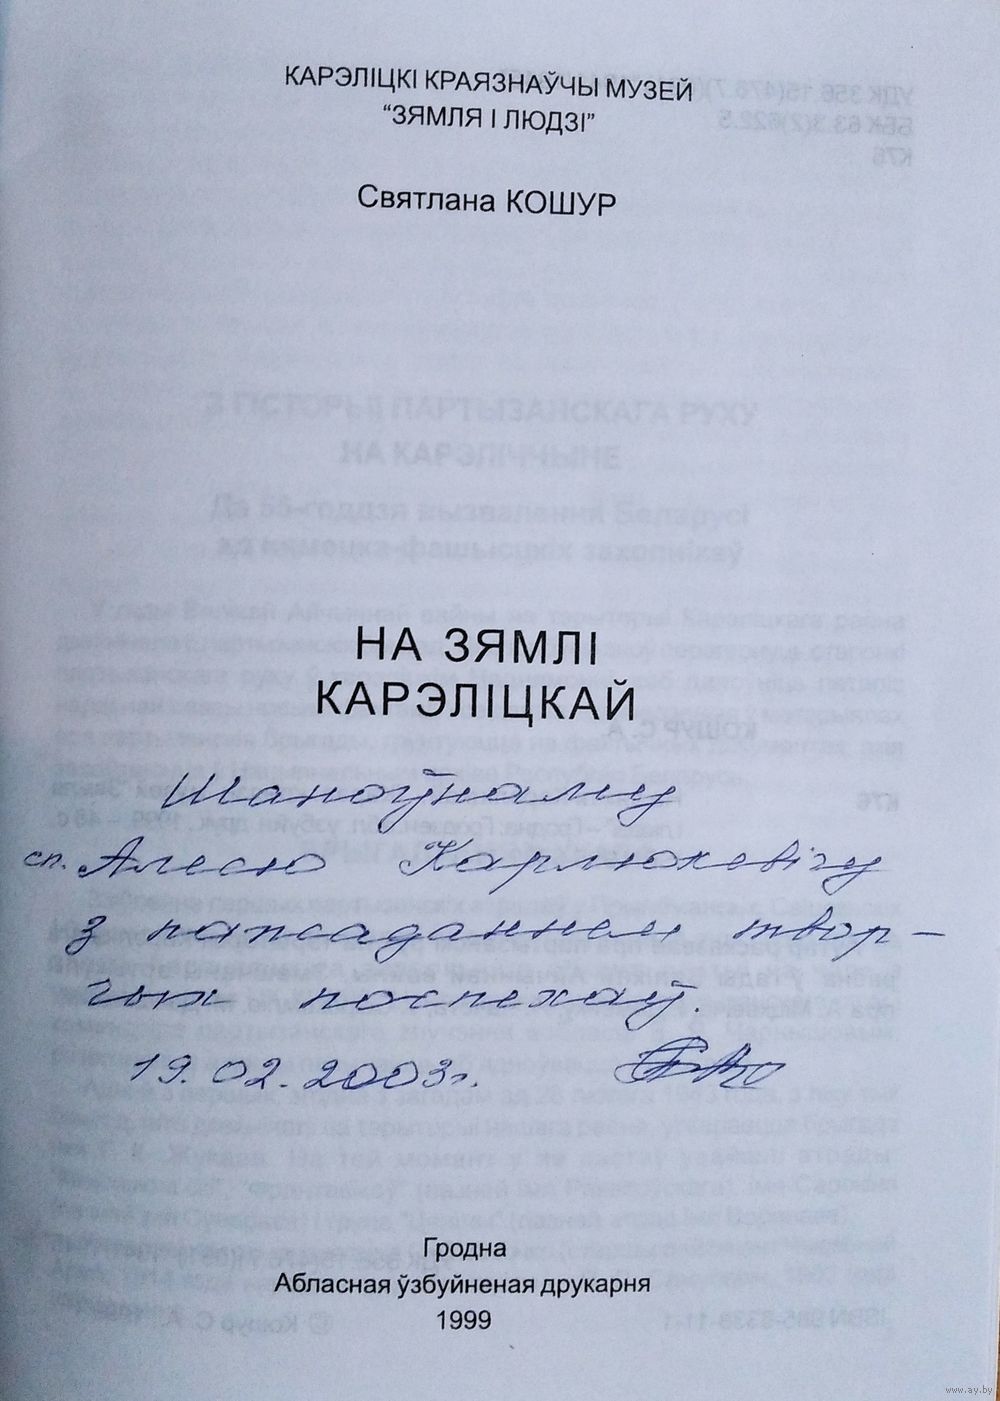 КАРЭЛІЦКІ КРАЯЗНАЎЧЫ МУЗЕЙ
“ЗЯМЛЯ І ЛЮДЗІ”
Святлана КОШУР
НА ЗЯМЛІ
КАРЭЛІЦКАЙ
Шаноўнаму
сп. Алесю Карлюкевічу
з пажаданнем твор-
чых поспехаў.
19.02.2003г.
Гродна
Абласная ўзбуйненая друкарня
1999
www.ay.by